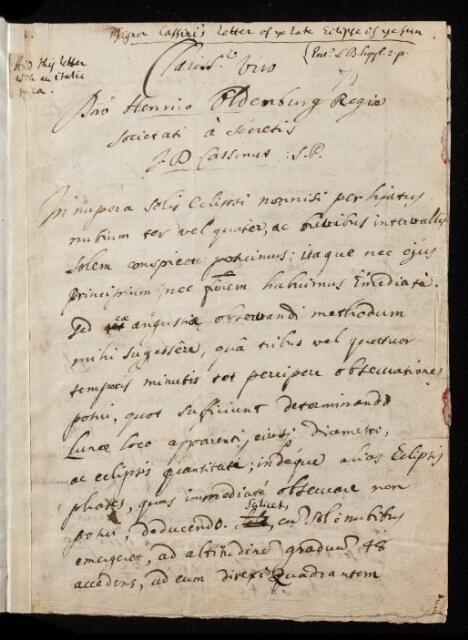 Signor Cassini's Letter of ye late Eclipse of ye sun
this letter
with an italic
Ent. L.B. Suppl. 2. p.
Clariss.º Viro
Dno Henrico Oldenburg Regiæ
Societati à secretis
J D Cassinus : S.P.
In nupera solis eclipsi nonnisi per hiatus
nubium ter vel quater, ac brevibus intervallis
solem conspicere potuimus; itaque nec ejus
principium nec finem habuimus imediatè.
sed eæ angustiæ observandi methodum
mihi suggessêre, quâ tribus vel quatuor
temporis minutis tot percipere observationes
potui, quot sufficiunt determinando
Lunæ loco apparenti, eiusq. diametri,
ac eclipsis quantitati; indéque alias Eclipsis
phases, quas immediatè observare non
potui, deducendo. Scilicet, cum sol è nubibus
emergeret, ad altitudinē graduum 48
accedens, ad eum direxi Quadrantem